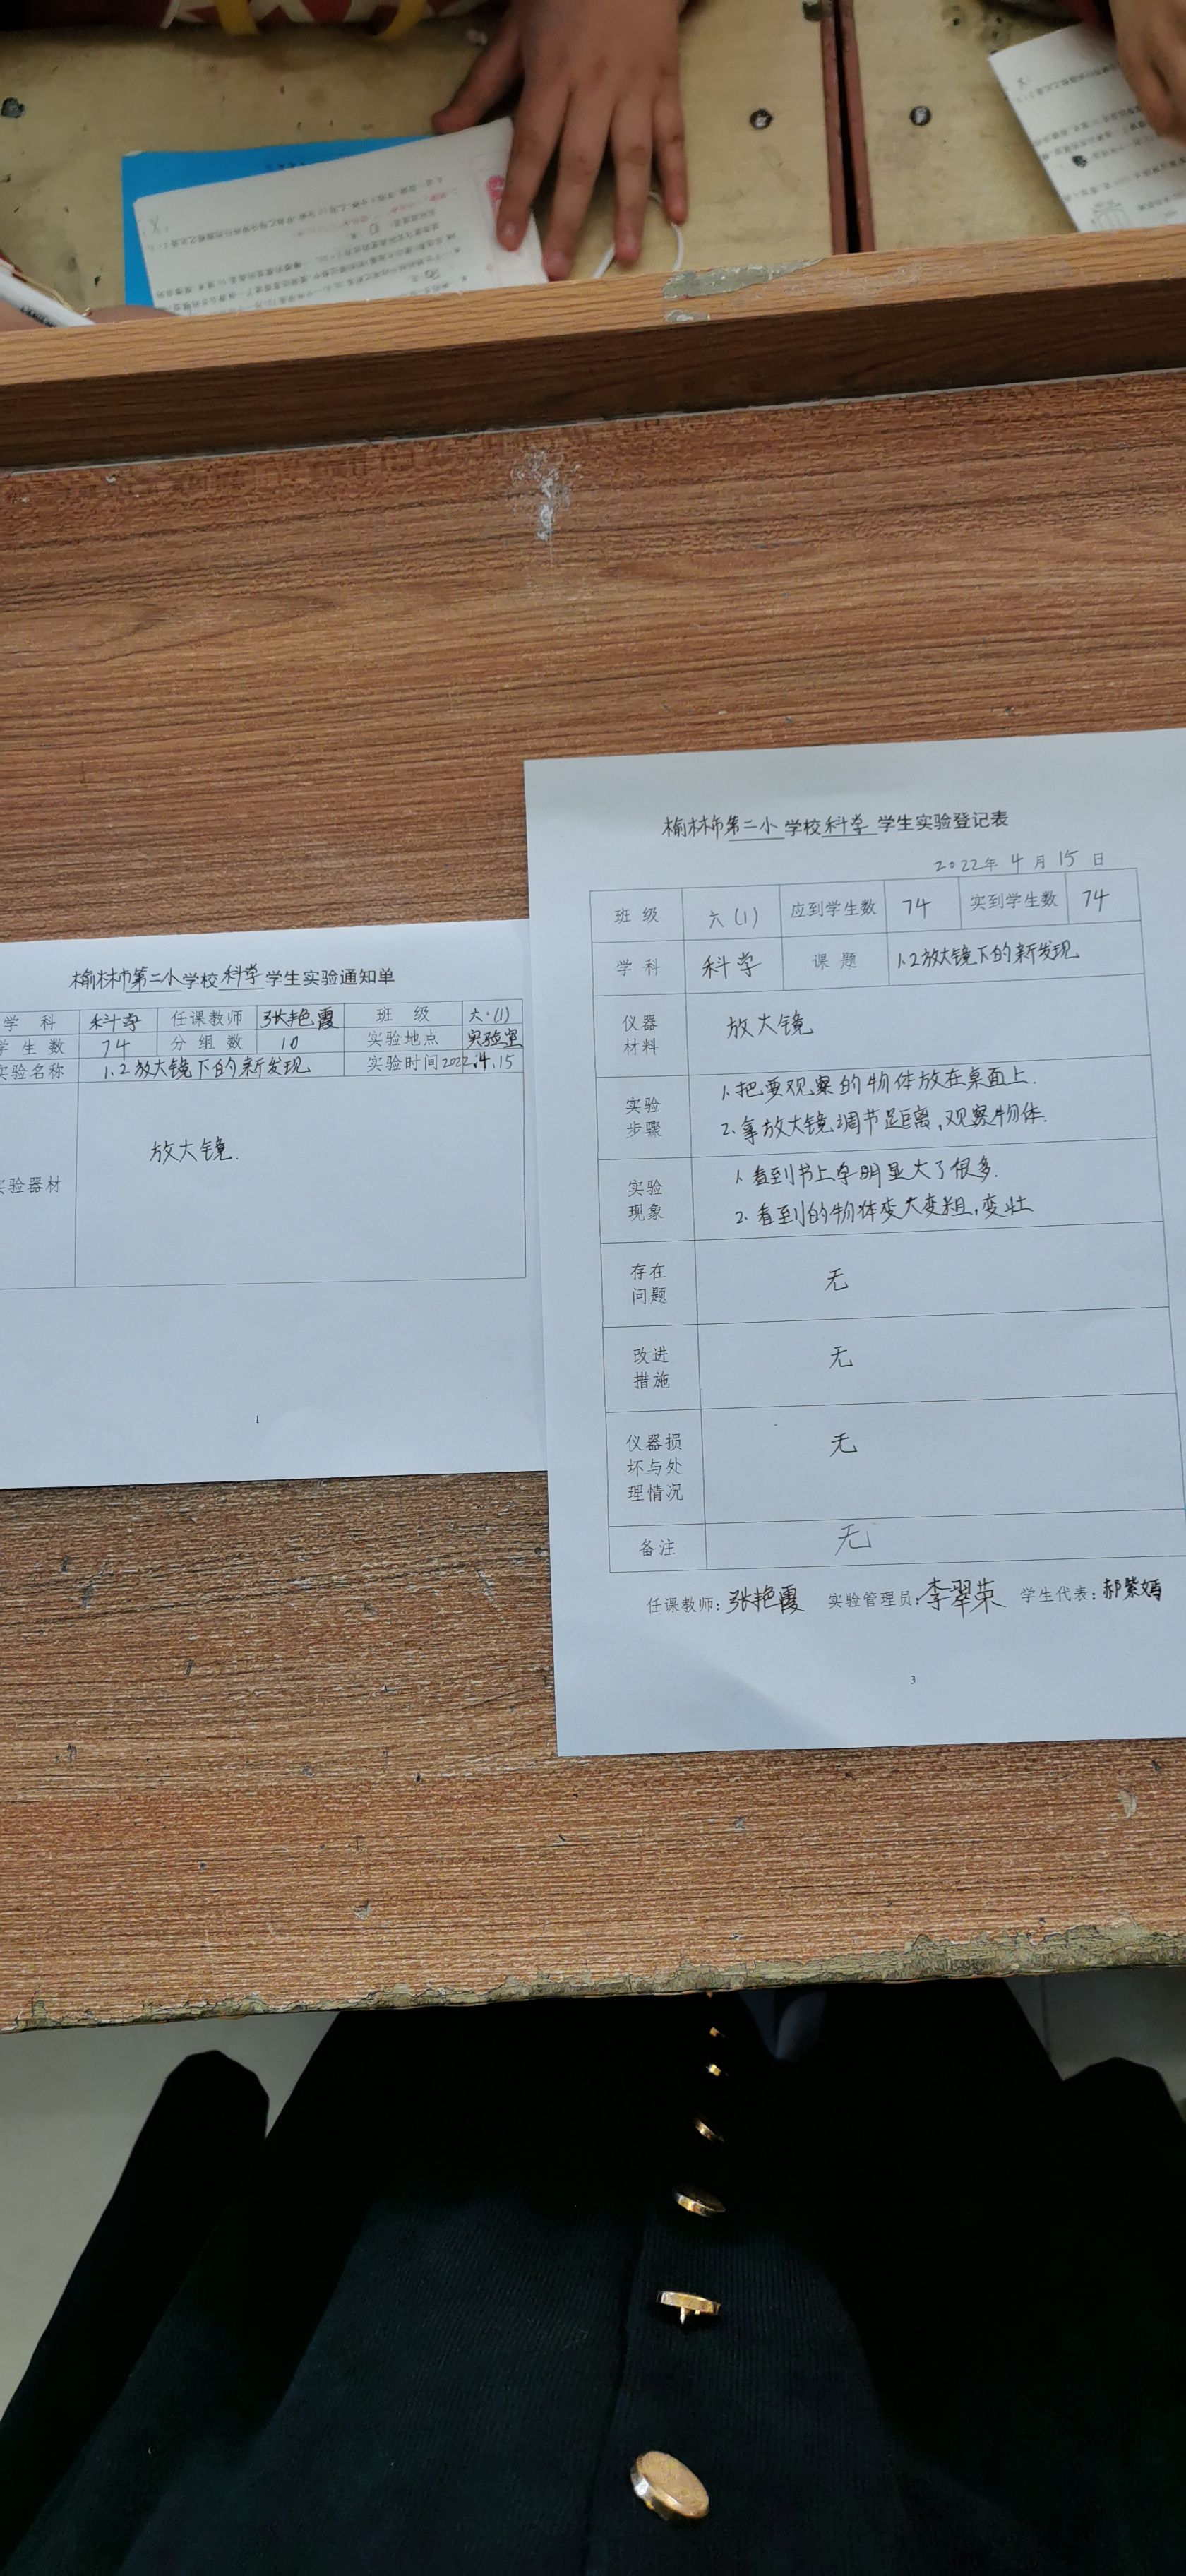 榆林市第二小学校科学学生实验通知单
学 科 科学 任课教师 张艳霞 班 级 六·(1)
学 生 数 74 分 组 数 10 实验地点 实验室
实验名称 1.2放大镜下的新发现 实验时间 2022.4.15
实验器材 放大镜.
1
榆林市第二小学校科学学生实验登记表
2022年 4 月 15 日
班 级 六(1) 应到学生数 74 实到学生数 74
学 科 科学 课 题 1.2放大镜下的新发现
仪器
材料
放大镜
实验
步骤
1.把要观察的物体放在桌面上.
2.拿放大镜调节足距离,观察物体.
实验
现象
1.看到书上字明显大了很多.
2.看到的物体变大变粗,变壮
存在
问题
无
改进
措施
无
仪器损
坏与处
理情况
无
备注 无
任课教师:张艳霞 实验管理员:李翠荣 学生代表:郝紫嫣
3